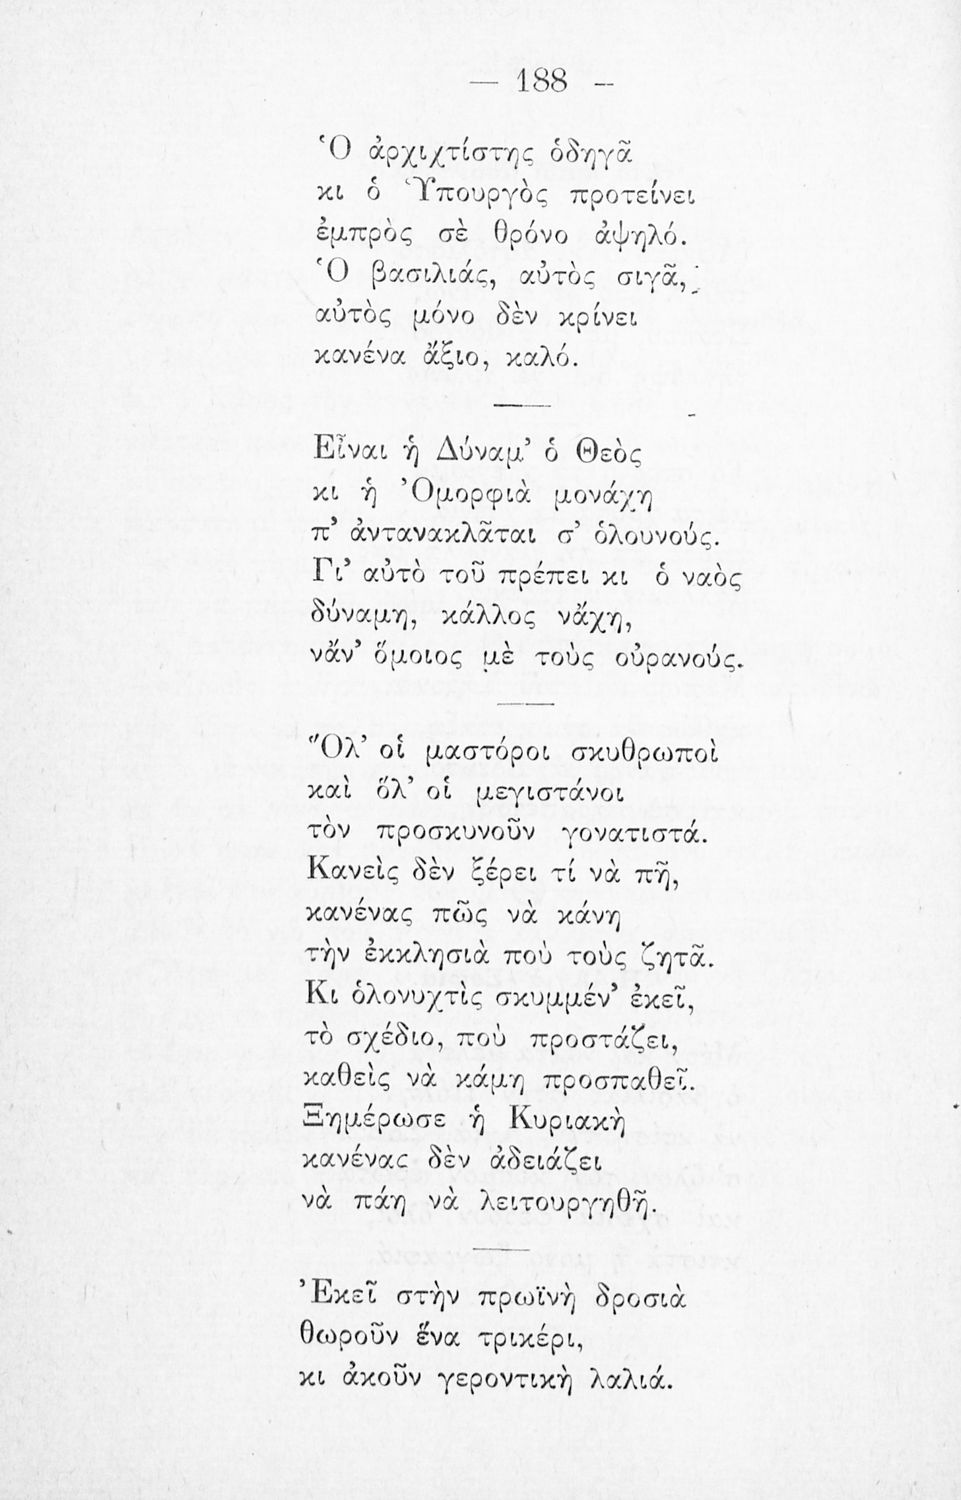 — 188 –
Ὁ ἀρχιχτίστης ὁδηγᾶ
κι ὁ Ὑπουργὸς προτείνει
ἐμπρὸς σὲ θρόνο ἀψηλό.
Ὁ βασιλιάς, αὐτὸς σιγᾶ,
αὐτὸς μόνο δὲν κρίνει
κανένα ἄξιο, καλό.
Εἶναι ἡ Δύναμ’ ὁ Θεὸς
κι ἡ Ὀμορφιὰ μονάχη
π’ ἀντανακλᾶται σ’ ὁλουνούς.
Γι’ αὐτὸ τοῦ πρέπει κι ὁ ναὸς
δύναμη, κάλλος νἄχη,
νἄν’ ὅμοιος μὲ τοὺς οὐρανούς.
Ὅλ’ οἱ μαστόροι σκυθρωποὶ
καὶ ὅλ’ οἱ μεγιστάνοι
τὸν προσκυνοῦν γονατιστά.
Κανεὶς δὲν ξέρει τί νὰ πῆ,
κανένας πῶς νὰ κάνη
τὴν ἐκκλησιὰ ποὺ τοὺς ζητᾶ.
Κι ὁλονυχτὶς σκυμμέν’ ἐκεῖ,
τὸ σχέδιο, ποὺ προστάζει,
καθεὶς νὰ κάμη προσπαθεῖ.
Ξημέρωσε ἡ Κυριακὴ
κανένας δὲν ἀδειάζει
νὰ πάη νὰ λειτουργηθῆ.
Ἐκεῖ στὴν πρωϊνὴ δροσιὰ
θωροῦν ἕνα τρικέρι,
κι ἀκοῦν γεροντικὴ λαλιά.